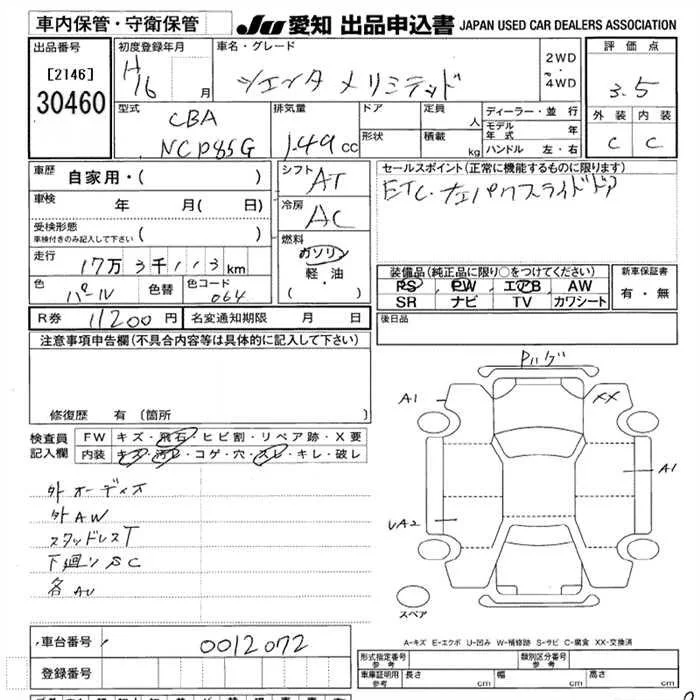 車内保管・守衛保管 JU 愛知 出品申込書 JAPAN USED CAR DEALERS ASSOCIATION
出品番号 初度登録年月 車名・グレード 2WD 評価点
[2146] H16 月 シエンタ メ リミテッド ・ 4WD 3.5
30460 型式 排気量 ドア 定員 人 ディーラー・並 行 外装 内装
CBA 1.49 cc 形状 積載 kg モデル年式 年 C C
NCP85G ハンドル 左・右
車歴 自家用・( ) シフト AT セールスポイント(正常に機能するものに限ります)
車検 年 月( 日) 冷房 AC ETC・ナビ パワースライドドア
受検形態 ( )
車検付きのみ記入して下さい
燃料 ガソリン
走行 17万3千113km 軽・油 装備品(純正品に限り○をつけてください) 新車保証書
色 パール 色替 色コード 064 ( ・ ) PS PW エアB AW 有・無
SR ナビ TV カワシート
R券 11200円 名変通知期限 月 日 後日品
注意事項申告欄(不具合内容等は具体的に記入して下さい)
修復歴 有(箇所 )
検査員記入欄 FW キズ・飛石・ヒビ割・リペア跡・X要
内装 キズ・汚レ・コゲ・穴・スレ・キレ・破レ
外オーディオ
外AW
スタッドレスT
下廻りSC
各AU
A1 XX
A1
UA2
スペア
A-キズ E-エクボ U-凹み W-補修跡 S-サビ C-腐食 XX-交換済
車台番号 0012072 形式指定番号 参考 類別区分番号 参考
登録番号 車庫証明用 参考 長さ cm 幅 cm 高さ cm